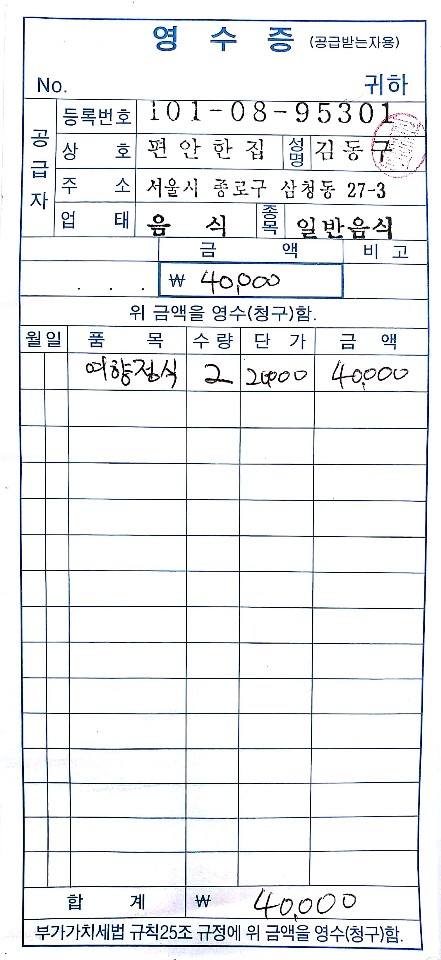 영 수 증 (공급받는자용)
No. 귀하
공급자
등록번호 101-08-95301
상 호 편안한집 성명 김동구
주 소 서울시 종로구 삼청동 27-3
업 태 음 식 종목 일반음식
금 액 비 고
. . . ₩ 40,000
위 금액을 영수(청구)함.
월 일 품 목 수 량 단 가 금 액
여향정식 2 20000 40,000
합 계 ₩ 40,000
부가가치세법 규칙25조 규정에 위 금액을 영수(청구)함.